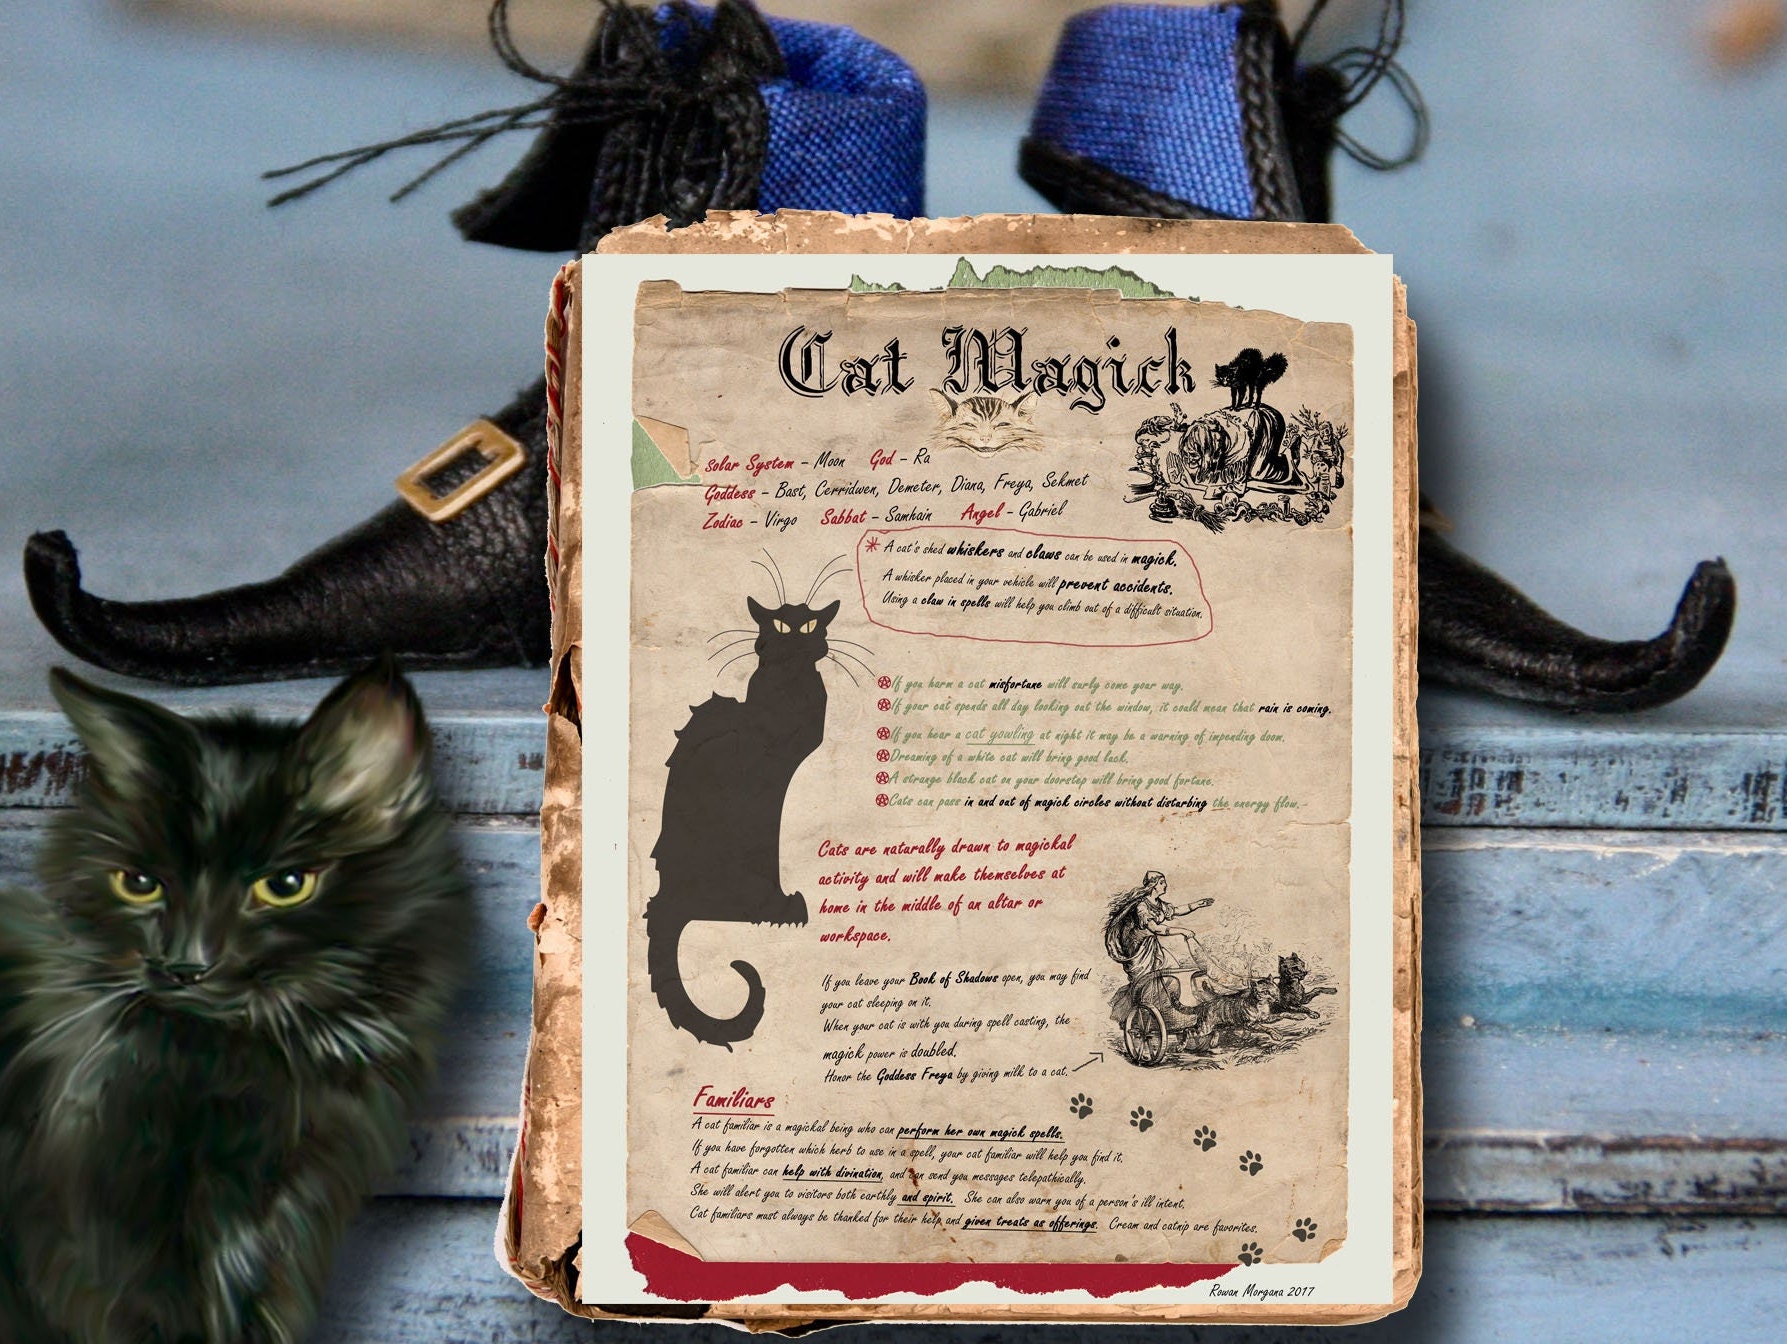 Cat Magick
Solar System - Moon God - Ra
Goddess - Bast, Cerridwen, Demeter, Diana, Freya, Sekmet
Zodiac - Virgo Sabbat - Samhain Angel - Gabriel
* A cat's shed whiskers and claws can be used in magick.
A whisker placed in your vehicle will prevent accidents.
Using a claw in spells will help you climb out of a difficult situation.
If you harm a cat misfortune will surly come your way.
If your cat spends all day looking out the window, it could mean that rain is coming.
If you hear a cat yowling at night it may be a warning of impending doom.
Dreaming of a white cat will bring good luck.
A strange black cat on your doorstep will bring good fortune.
Cats can pass in and out of magick circles without disturbing the energy flow.-
Cats are naturally drawn to magickal
activity and will make themselves at
home in the middle of an altar or
workspace.
If you leave your Book of Shadows open, you may find
your cat sleeping on it.
When your cat is with you during spell casting, the
magick power is doubled.
Honor the Goddess Freya by giving milk to a cat.
Familiars
A cat familiar is a magickal being who can perform her own magick spells.
If you have forgotten which herb to use in a spell, your cat familiar will help you find it.
A cat familiar can help with divination, and can send you messages telepathically.
She will alert you to visitors both earthly and spirit. She can also warn you of a person's ill intent.
Cat familiars must always be thanked for their help and given treats as offerings. Cream and catnip are favorites.
Rowan Morgana 2017